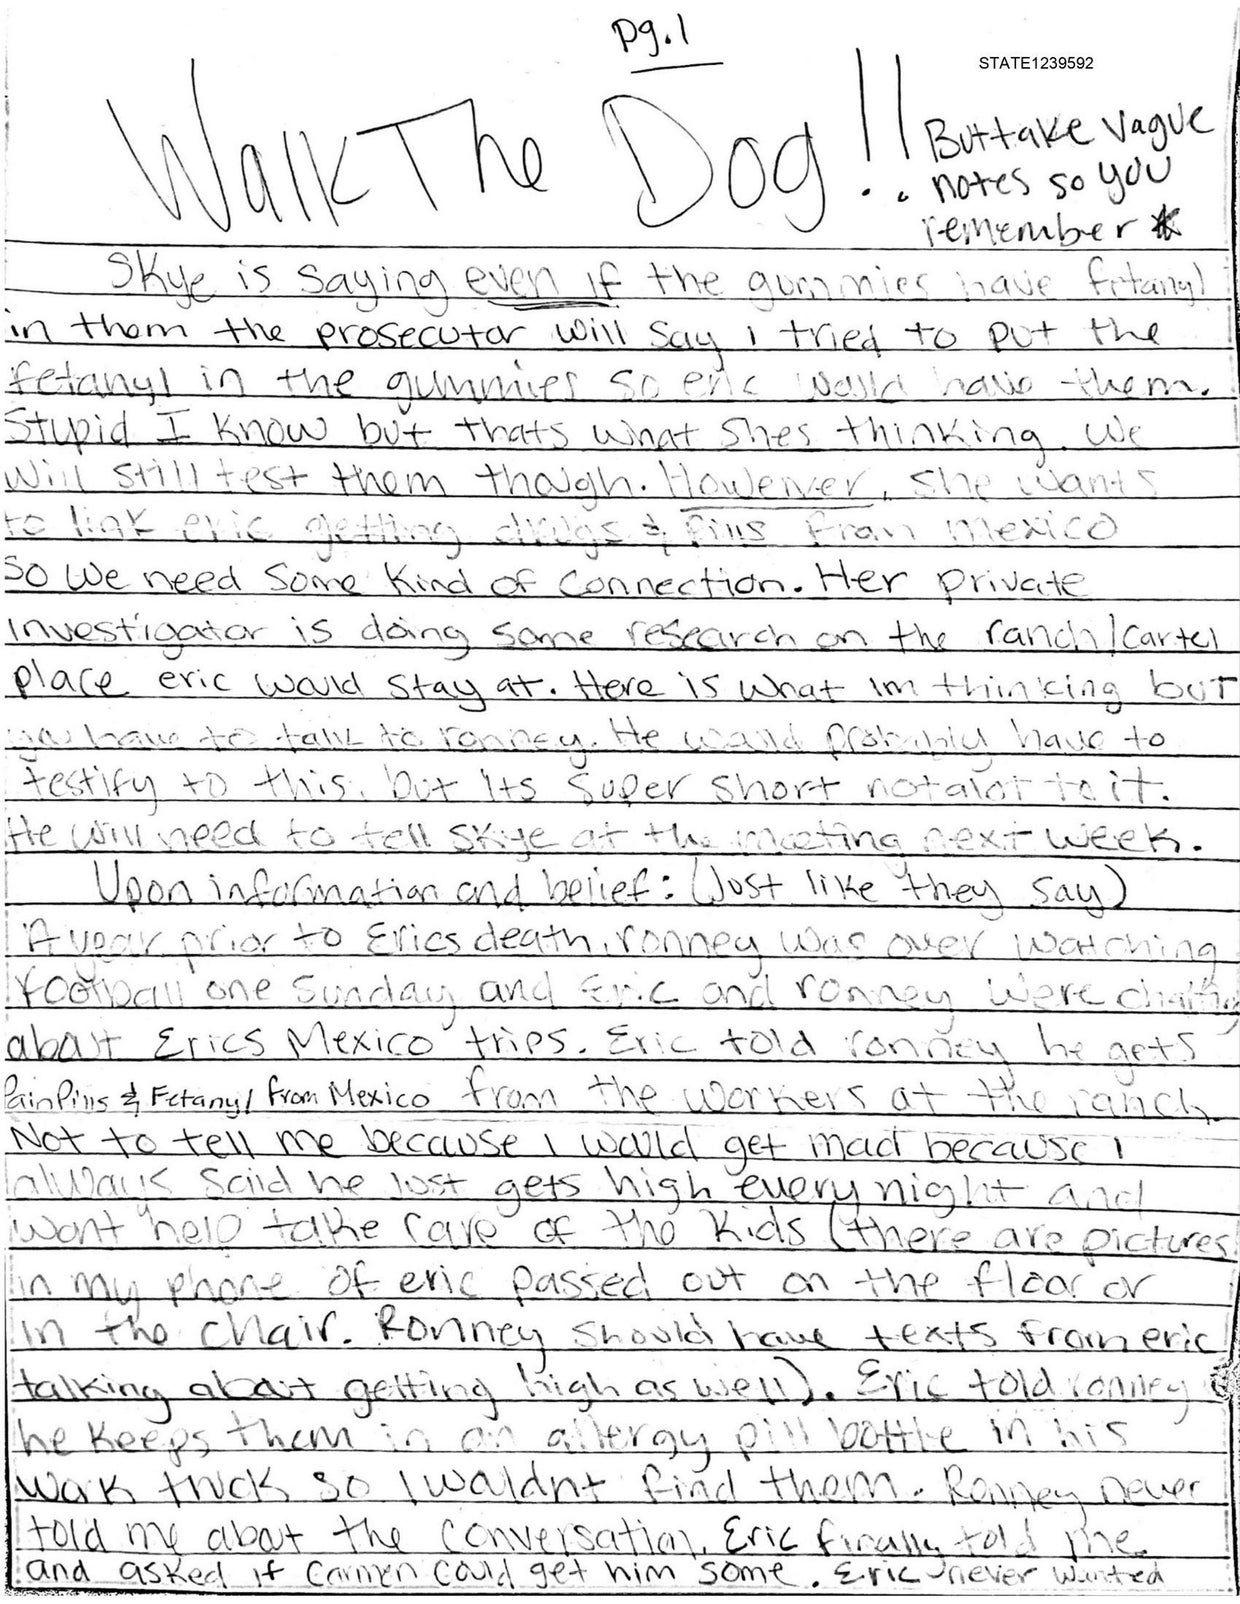 pg.1
STATE1239592
Walk The Dog!!
But take vague
notes so you
remember *
Skye is saying even if the gummies have fetanyl
in them the prosecutor will say I tried to put the
fetanyl in the gummies so eric would have them.
Stupid I know but thats what shes thinking. We
will still test them though. However, she wants
to link eric getting drugs & pills from mexico
So we need some kind of connection. Her private
investigator is doing some research on the ranch/cartel
place eric would stay at. Here is what im thinking but
you have to talk to ronney. He would probably have to
testify to this. but its super short notalot to it.
He will need to tell Skye at the meeting next week.
Upon information and belief: (Just like they say)
A year prior to Erics death, ronney was over watching
football one Sunday and Eric and ronney were chatting
about Erics Mexico trips. Eric told ronney he gets
Pain Pills & Fetanyl from Mexico from the workers at the ranch.
Not to tell me because I would get mad because I
always said he just gets high every night and
wont help take care of the kids (there are pictures
in my phone of eric passed out on the floor or
in the chair. Ronney should have texts from eric
talking about getting high as well). Eric told ronney
he keeps them in an allergy pill bottle in his
work truck so I wouldnt find them. Ronney never
told me about the conversation. Eric finally told me
and asked if Carmen could get him some. Eric never wanted